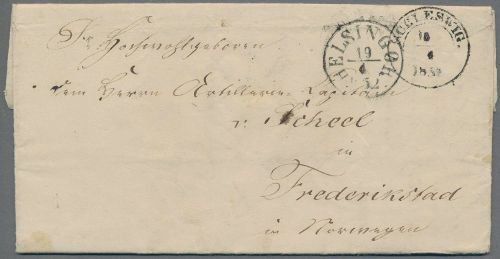 Sr Hochwohlgeboren
dem Herrn Artillerie-Capitain
v. Scheel
in
Frederikstad
in Norwegen
HELSINGÖR
19
4
52
SCHLESWIG.
4